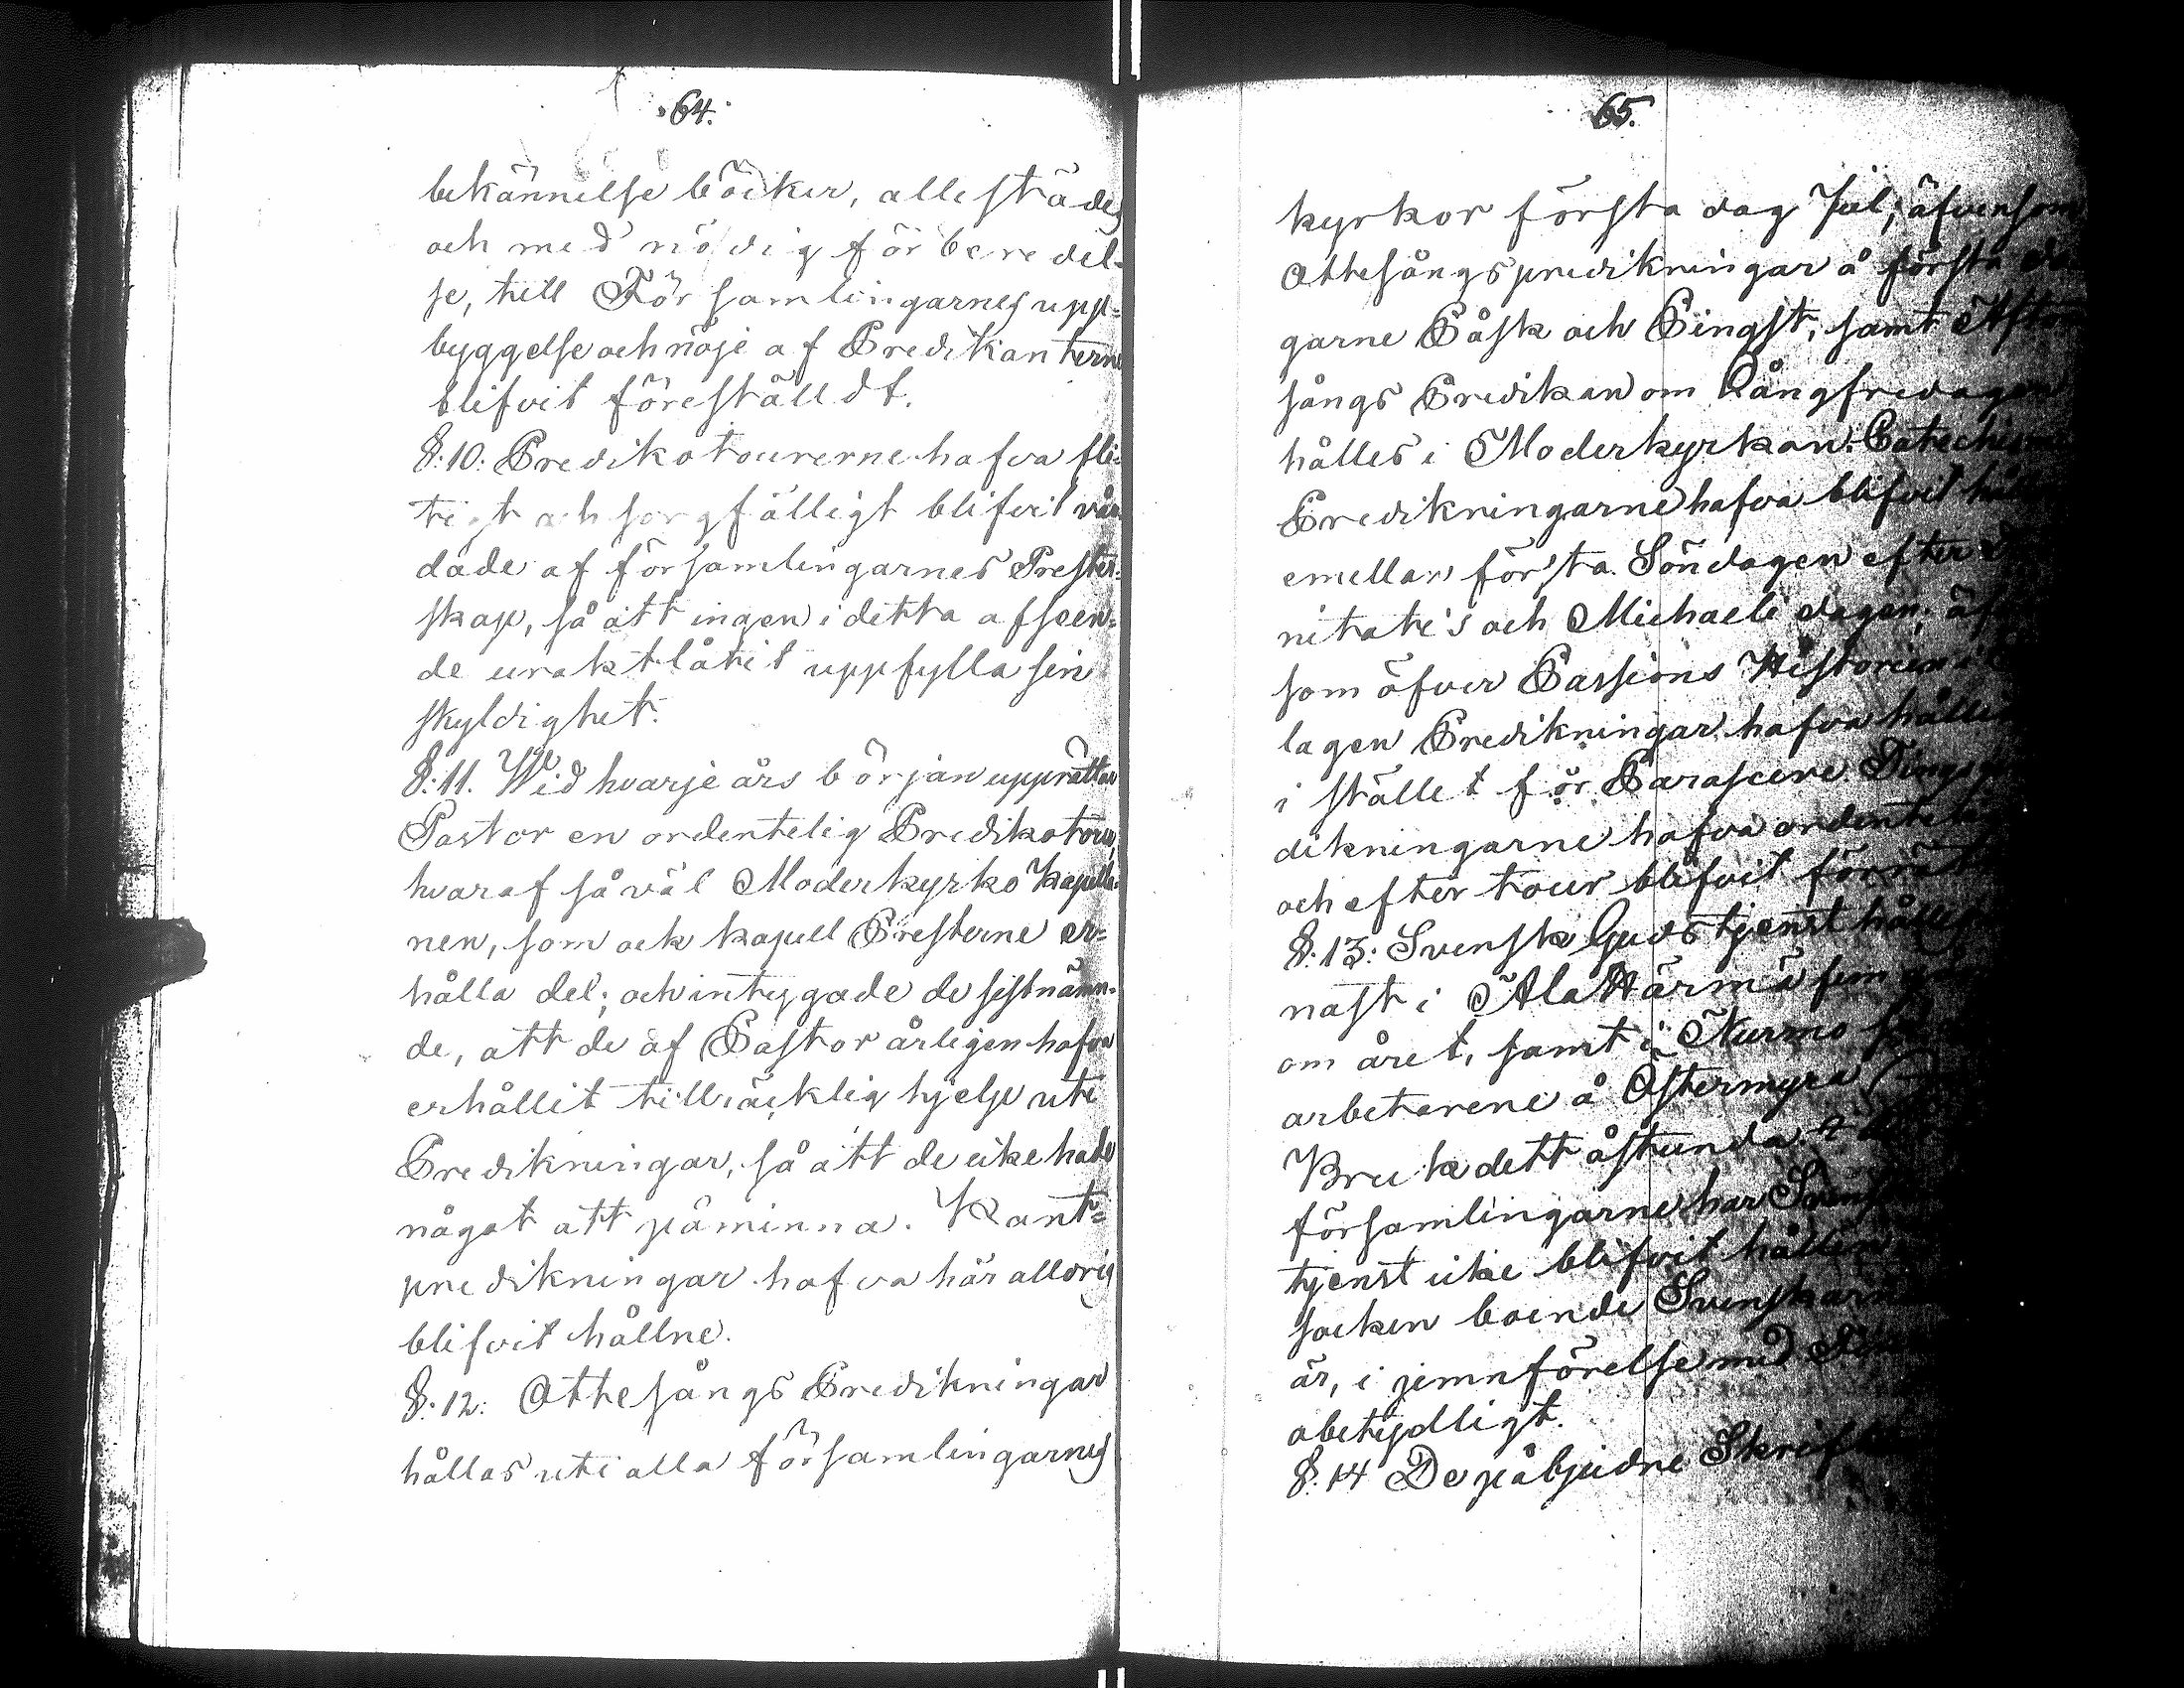 64.
bekännelse böcker, allestädes
och med nödig för beredel-
se, till Församlingarnes upp-
byggelse och nöje af Predikanterne
blifvit föreställdt.
§. 10: Predikotourerne hafva fli-
tigt och sorgfälligt blifvit vår-
dade af församlingarnes Prester-
skap, så att ingen i detta afseen-
de uraktlåtit uppfylla sin
skyldighet.
§. 11. Wid hvarje års början upprättar
Pastor en ordentelig Predikotour,
hvaraf så väl Moderkyrko Kapella-
nen, som ock kapell Presterne er-
hålla del; och intygade de sistnämn-
de, att de af Pastor årligen hafva
erhållit tillräcklig hjelp uti
Predikningar, så att de icke hade
något att påminna. Kant-
predikningar hafva här alldrig
blifvit hållne.
§. 12: Ottesångs Predikningar
hållas uti alla församlingarnes
65.
kyrkor första dag Jul; äfvensom
Ottesångspredikningar å första da
garne Påsk och Pingst, samt Afton
sångs Predikan om Långfredagen
hålles i Moderkyrkan. Catechismi
Predikningarne hafva blifvit hållne
emellan första Söndagen efter
nitatis och Michaeli dagen; äf
som öfver Passions Historien i
lagen Predikningar hafva hållits
i stället för Parasceve
dikningarne hafva ordenteligen
och efter tour blifvit förrät
§. 13: Svensk Gudstjenst hålles
nast i Ala Härmä fem
om året, samt i Nurmo
arbetarene å Östermyra
Bruk dett åstunda
församlingarne har Svensk
tjenst icke blifvit hållen
socken boende Svenskarne
är, i jemnförelse med
obetydligt.
§. 14 De påbjudne Skrift